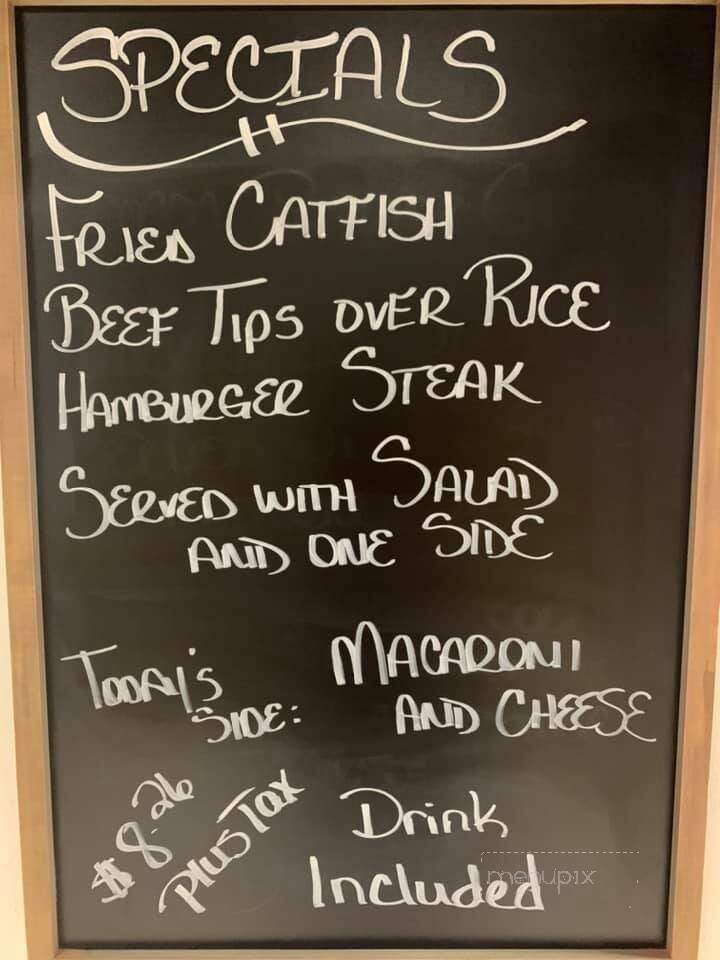 SPECIALS
FRIED CATFISH
BEEF TIPS OVER RICE
HAMBURGER STEAK
SERVED WITH SALAD
AND ONE SIDE
TODAY'S
SIDE:
MACARONI
AND CHEESE
$8.26
plus Tax
Drink
Included
menupix